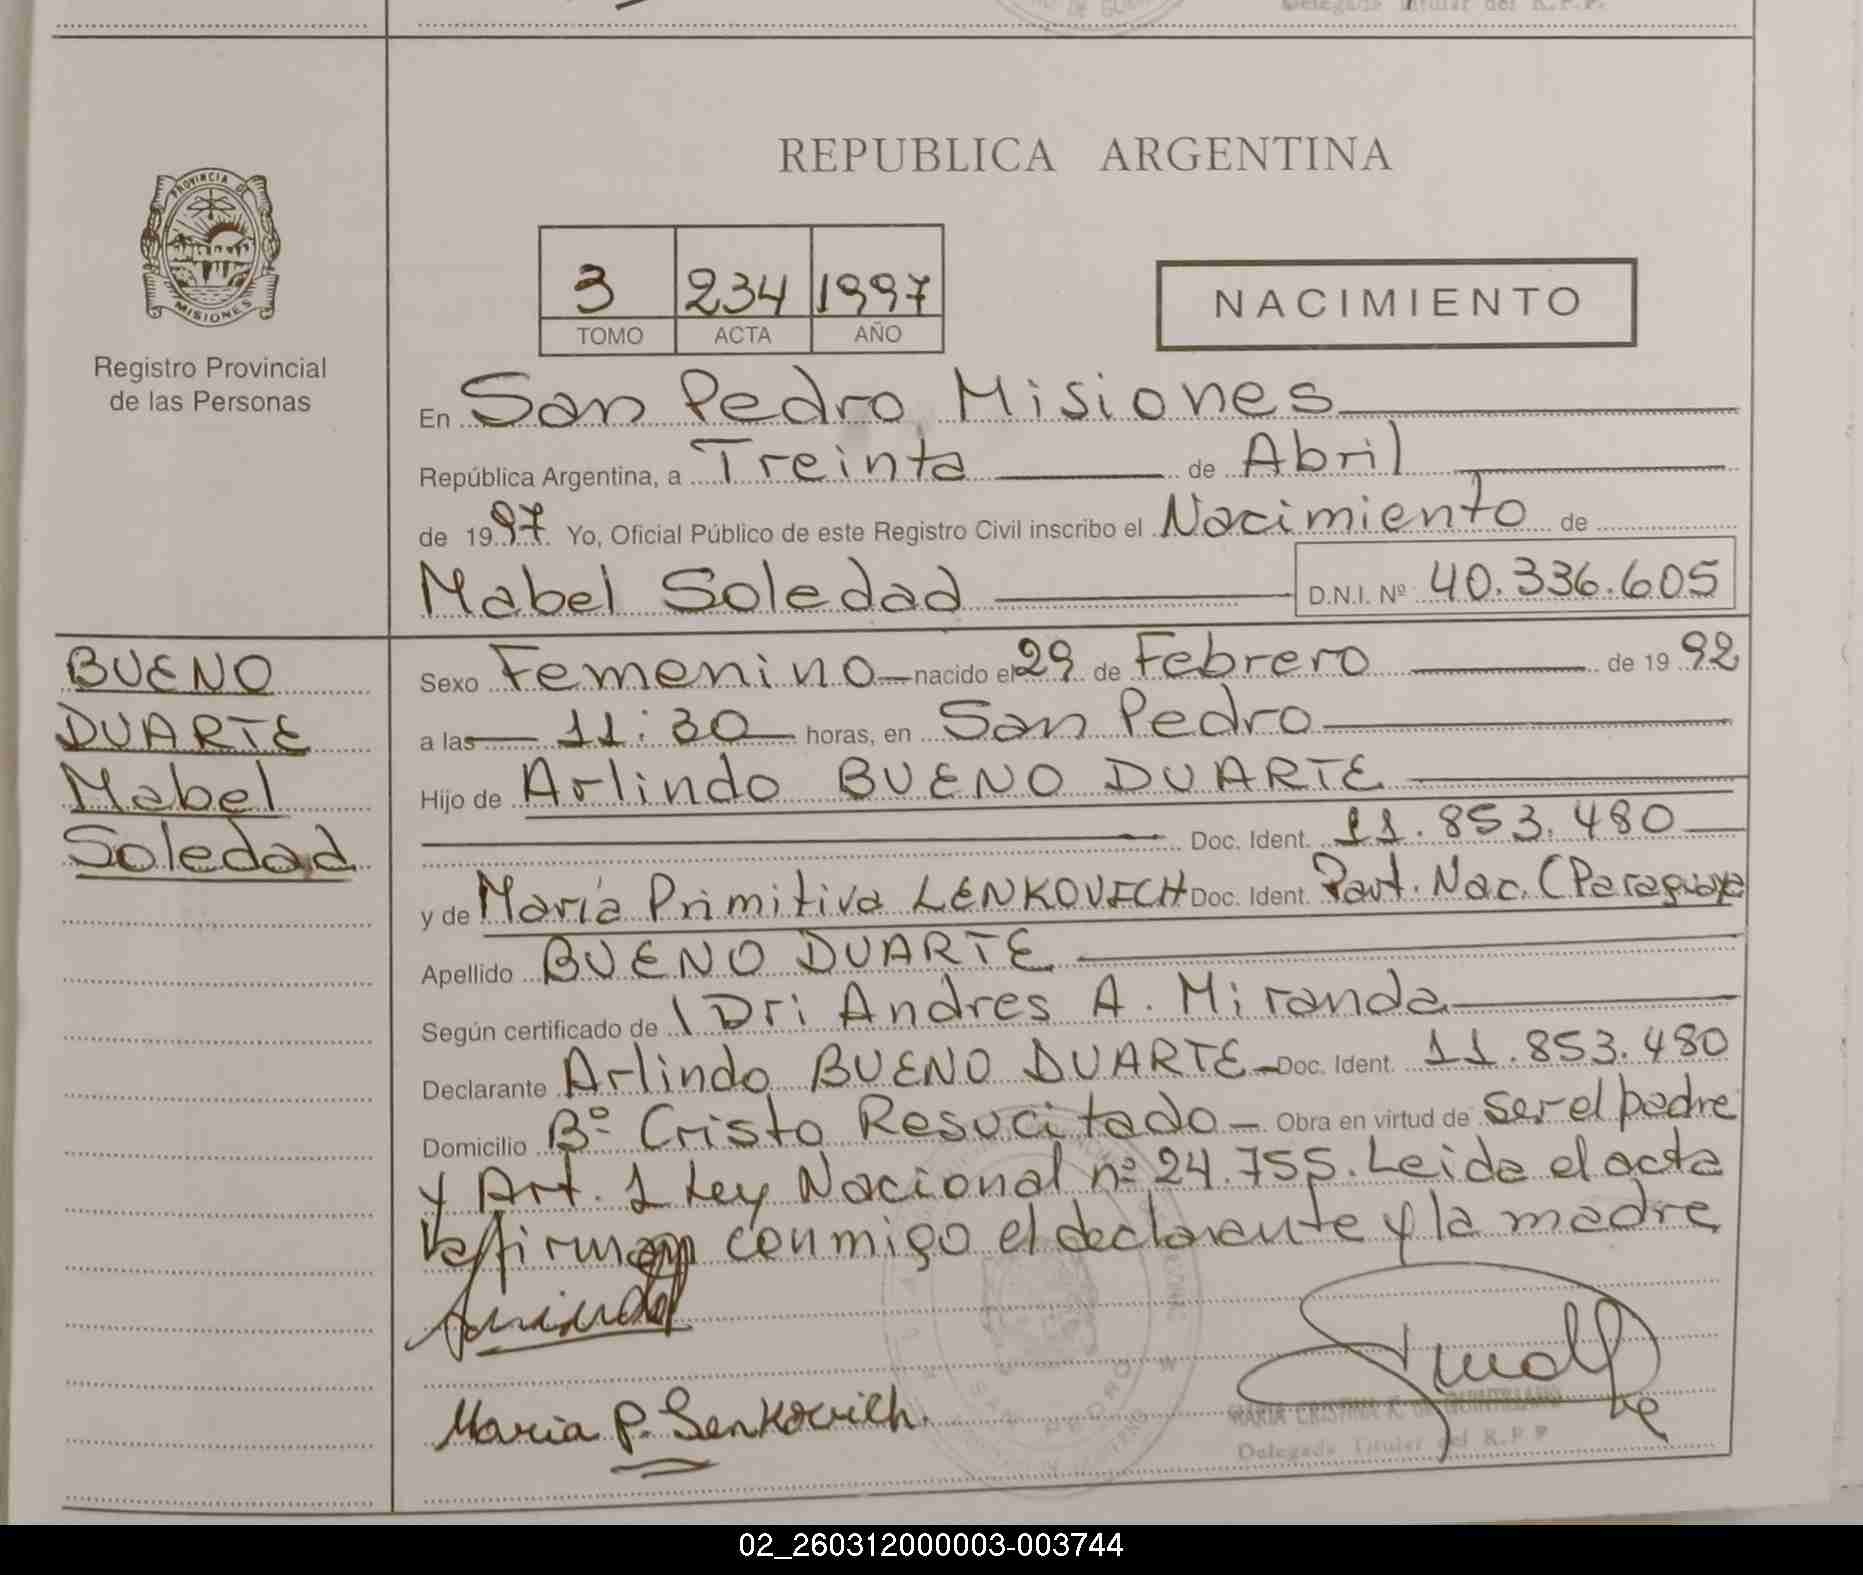 Delegada Titular del R.P.P.
REPUBLICA ARGENTINA
PROVINCIA DE
MISIONES
Registro Provincial
de las Personas
3 234 1997
TOMO ACTA AÑO
NACIMIENTO
En San Pedro Misiones
República Argentina, a Treinta de Abril
de 1997. Yo, Oficial Público de este Registro Civil inscribo el Nacimiento de
Mabel Soledad D.N.I. Nº 40.336.605
BUENO
DUARTE
Mabel
Soledad
Sexo Femenino nacido el 29 de Febrero de 1992
a las 11:30 horas, en San Pedro
Hijo de Arlindo BUENO DUARTE
Doc. Ident. 11.853.480
y de María Primitiva LENKOVICH Doc. Ident. Part. Nac. (Paraguaya
Apellido BUENO DUARTE
Según certificado de Andres A. Miranda
Declarante Arlindo BUENO DUARTE Doc. Ident. 11.853.480
Domicilio Bº Cristo Resucitado Obra en virtud de ser el padre
y Art. 1 Ley Nacional nº 24.755. Leida el acta
la firman conmigo el declarante y la madre
Maria P. Lenkovich.
SAN PEDRO
MARIA CRISTINA K. DE QUINTELIANO
Delegada Titular del R.P.P
02_260312000003-003744